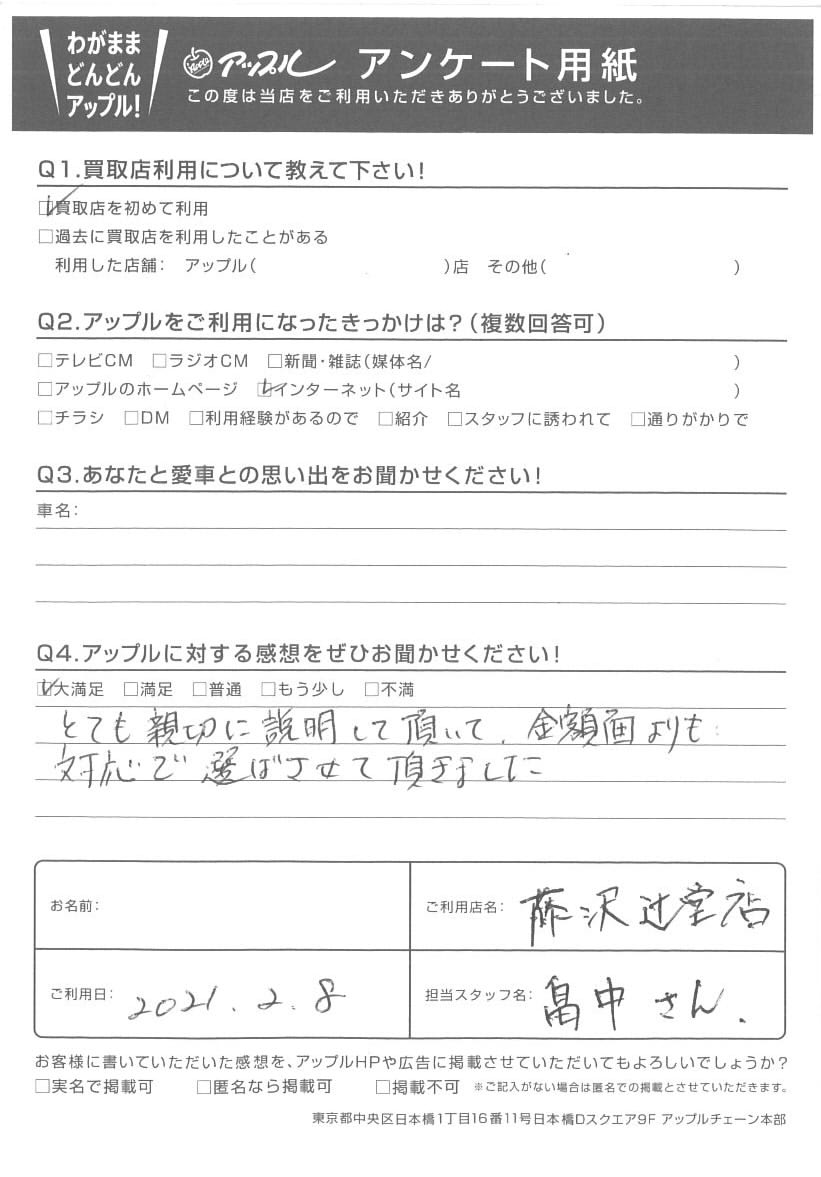 わがまま
どんどん
アップル!
Apple アップル アンケート用紙
この度は当店をご利用いただきありがとうございました。
Q1.買取店利用について教えて下さい!
☑買取店を初めて利用
□過去に買取店を利用したことがある
利用した店舗: アップル( )店 その他( )
Q2.アップルをご利用になったきっかけは?(複数回答可)
□テレビCM □ラジオCM □新聞・雑誌(媒体名/ )
□アップルのホームページ ☑インターネット(サイト名 )
□チラシ □DM □利用経験があるので □紹介 □スタッフに誘われて □通りがかりで
Q3.あなたと愛車との思い出をお聞かせください!
車名:
Q4.アップルに対する感想をぜひお聞かせください!
☑大満足 □満足 □普通 □もう少し □不満
とても親切に説明して頂いて、金額面よりも
対応で選ばさせて頂きました
お名前:
ご利用店名: 藤沢辻堂店
ご利用日: 2021.2.8
担当スタッフ名: 畠中さん.
お客様に書いていただいた感想を、アップルHPや広告に掲載させていただいてもよろしいでしょうか?
□実名で掲載可 □匿名なら掲載可 □掲載不可 ※ご記入がない場合は匿名での掲載とさせていただきます。
東京都中央区日本橋1丁目16番11号日本橋Dスクエア9F アップルチェーン本部